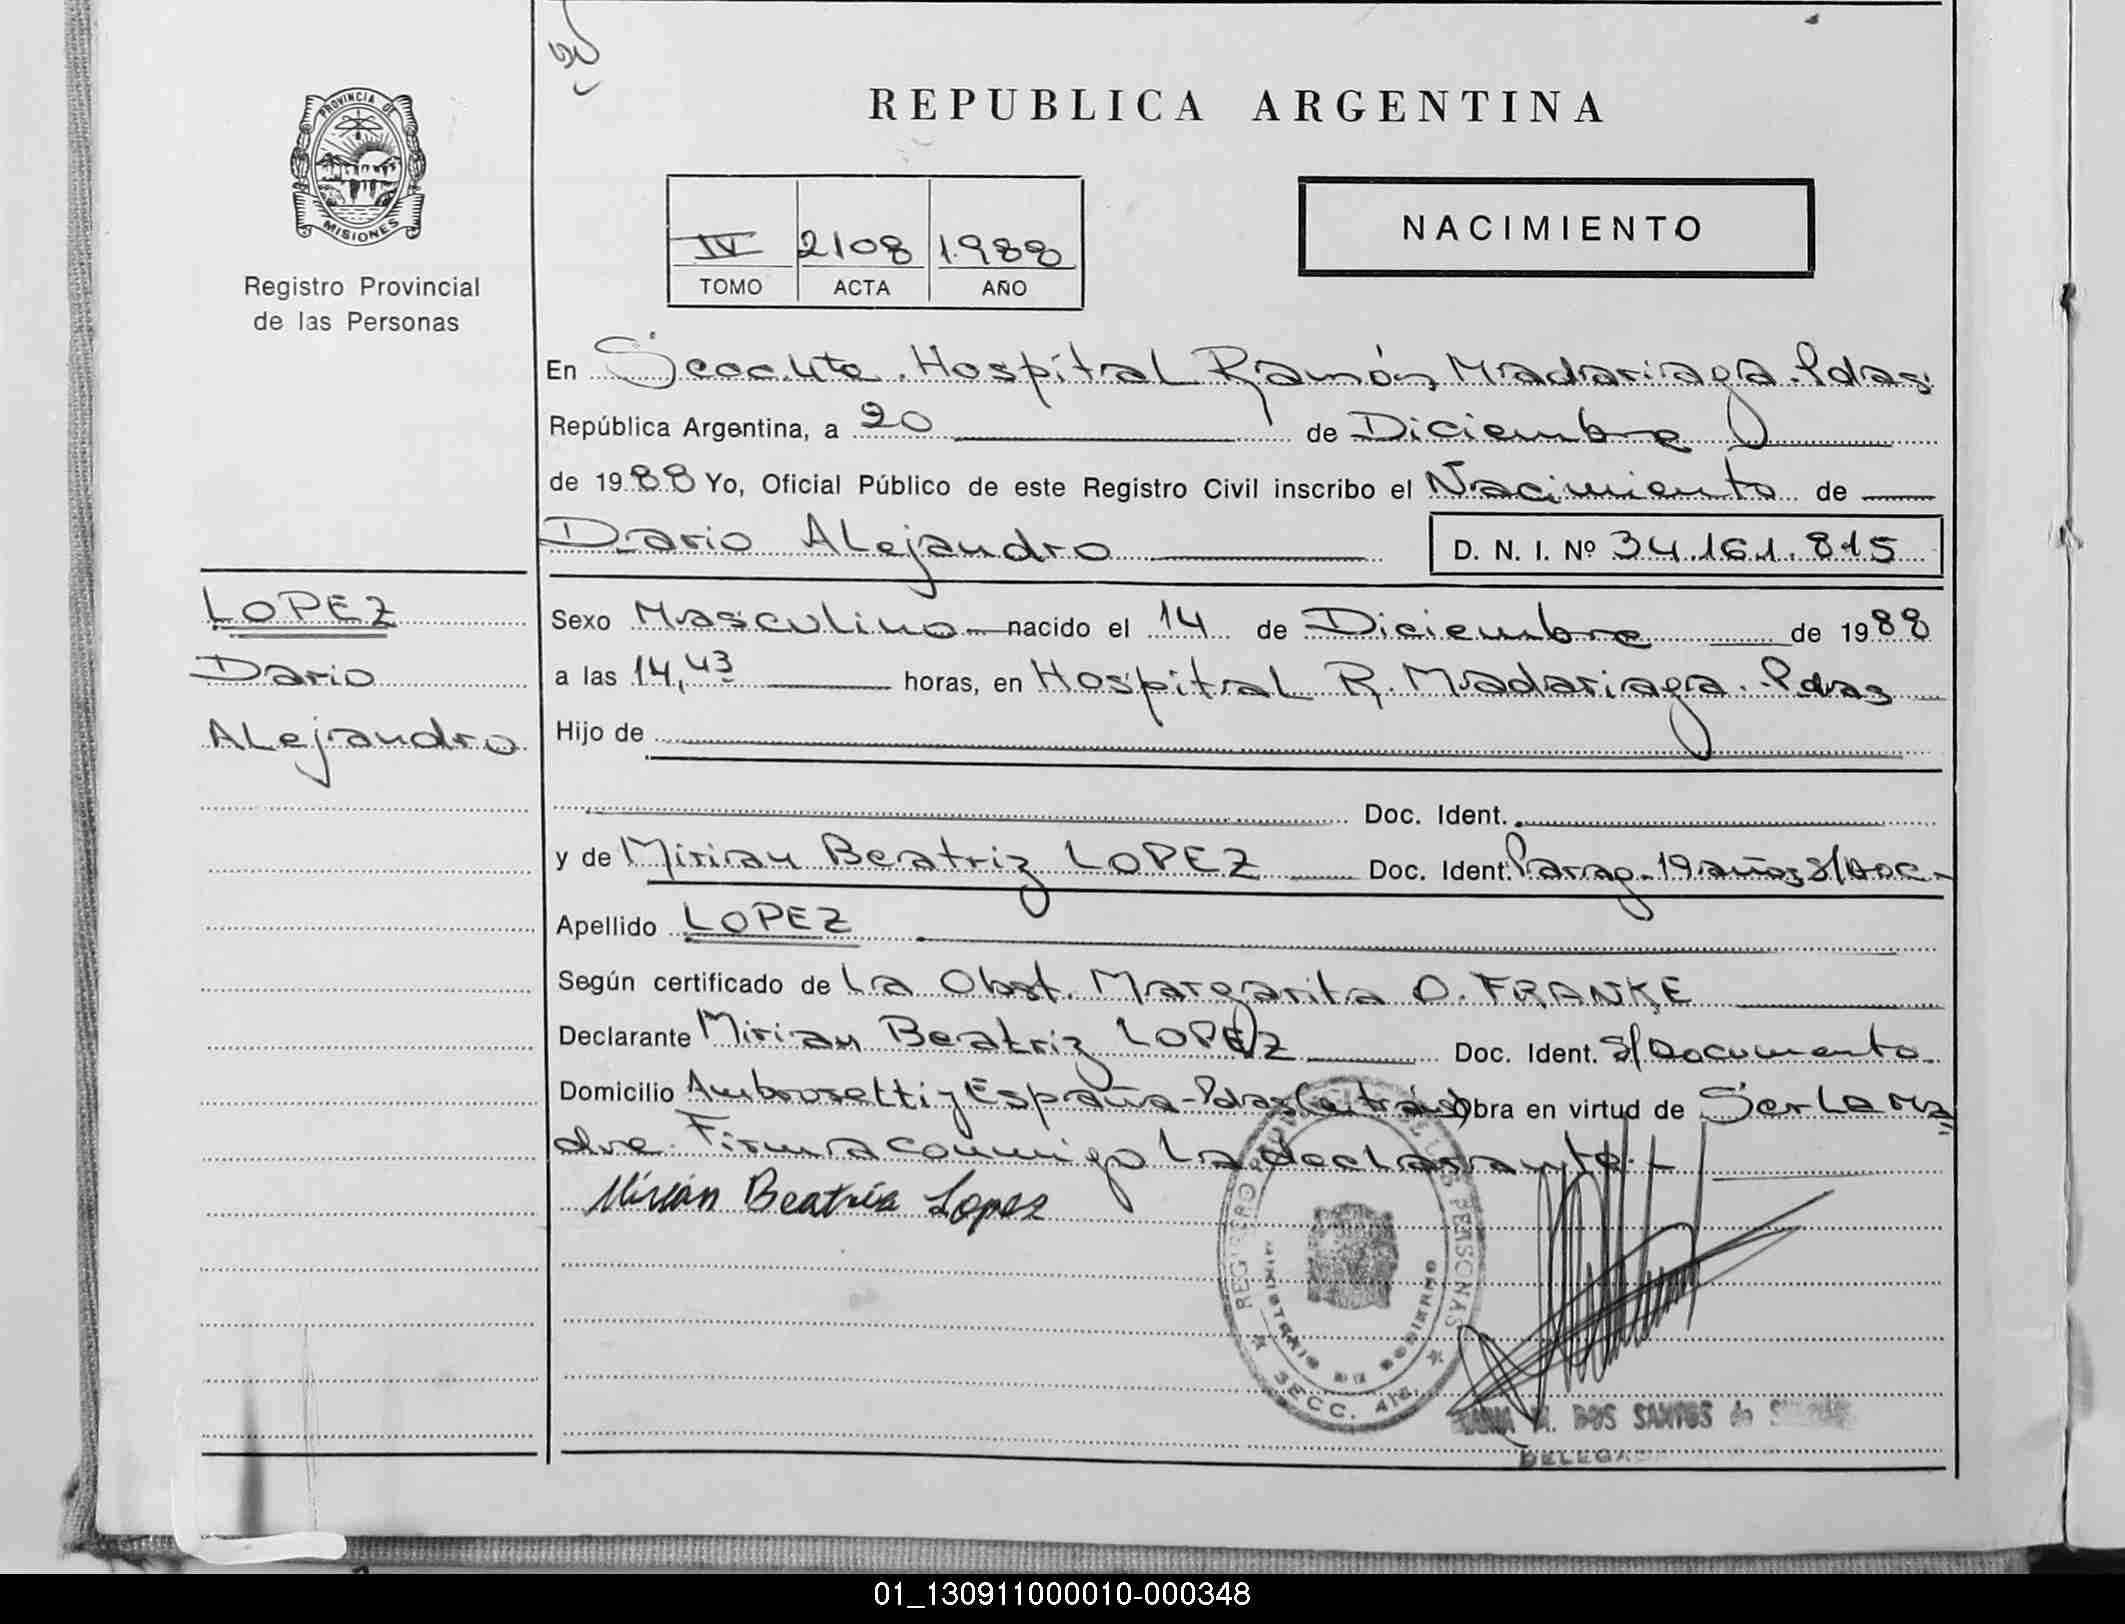 REPUBLICA ARGENTINA
PROVINCIA DE
MISIONES
Registro Provincial
de las Personas
IV 2108 1.988
TOMO ACTA AÑO
NACIMIENTO
En Hospital Ramón Madariaga. Pdas.
República Argentina, a 20 de Diciembre
de 1988 Yo, Oficial Público de este Registro Civil inscribo el Nacimiento de
Dario Alejandro
D. N. I. Nº 34.161.815
LOPEZ
Dario
Alejandro
Sexo Masculino nacido el 14 de Diciembre de 1988
a las 14,43 horas, en Hospital R. Madariaga. Pdas
Hijo de
Doc. Ident.
y de Mirian Beatriz LOPEZ Doc. Ident. Parag. 19 años S/Doc.-
Apellido LOPEZ
Según certificado de La Obst. Margarita O. FRANKE
Declarante Mirian Beatriz LOPEZ Doc. Ident. S/Documento
Domicilio Ambrosetti y España - Pdas Obra en virtud de Ser La Ma
dre. Firma conmigo La declarante.
Mirian Beatriz Lopez
REGISTRO PERSONAS
MINISTERIO DE GOBIERNO
SECC. 4ta.
M. DOS SANTOS de
01_130911000010-000348